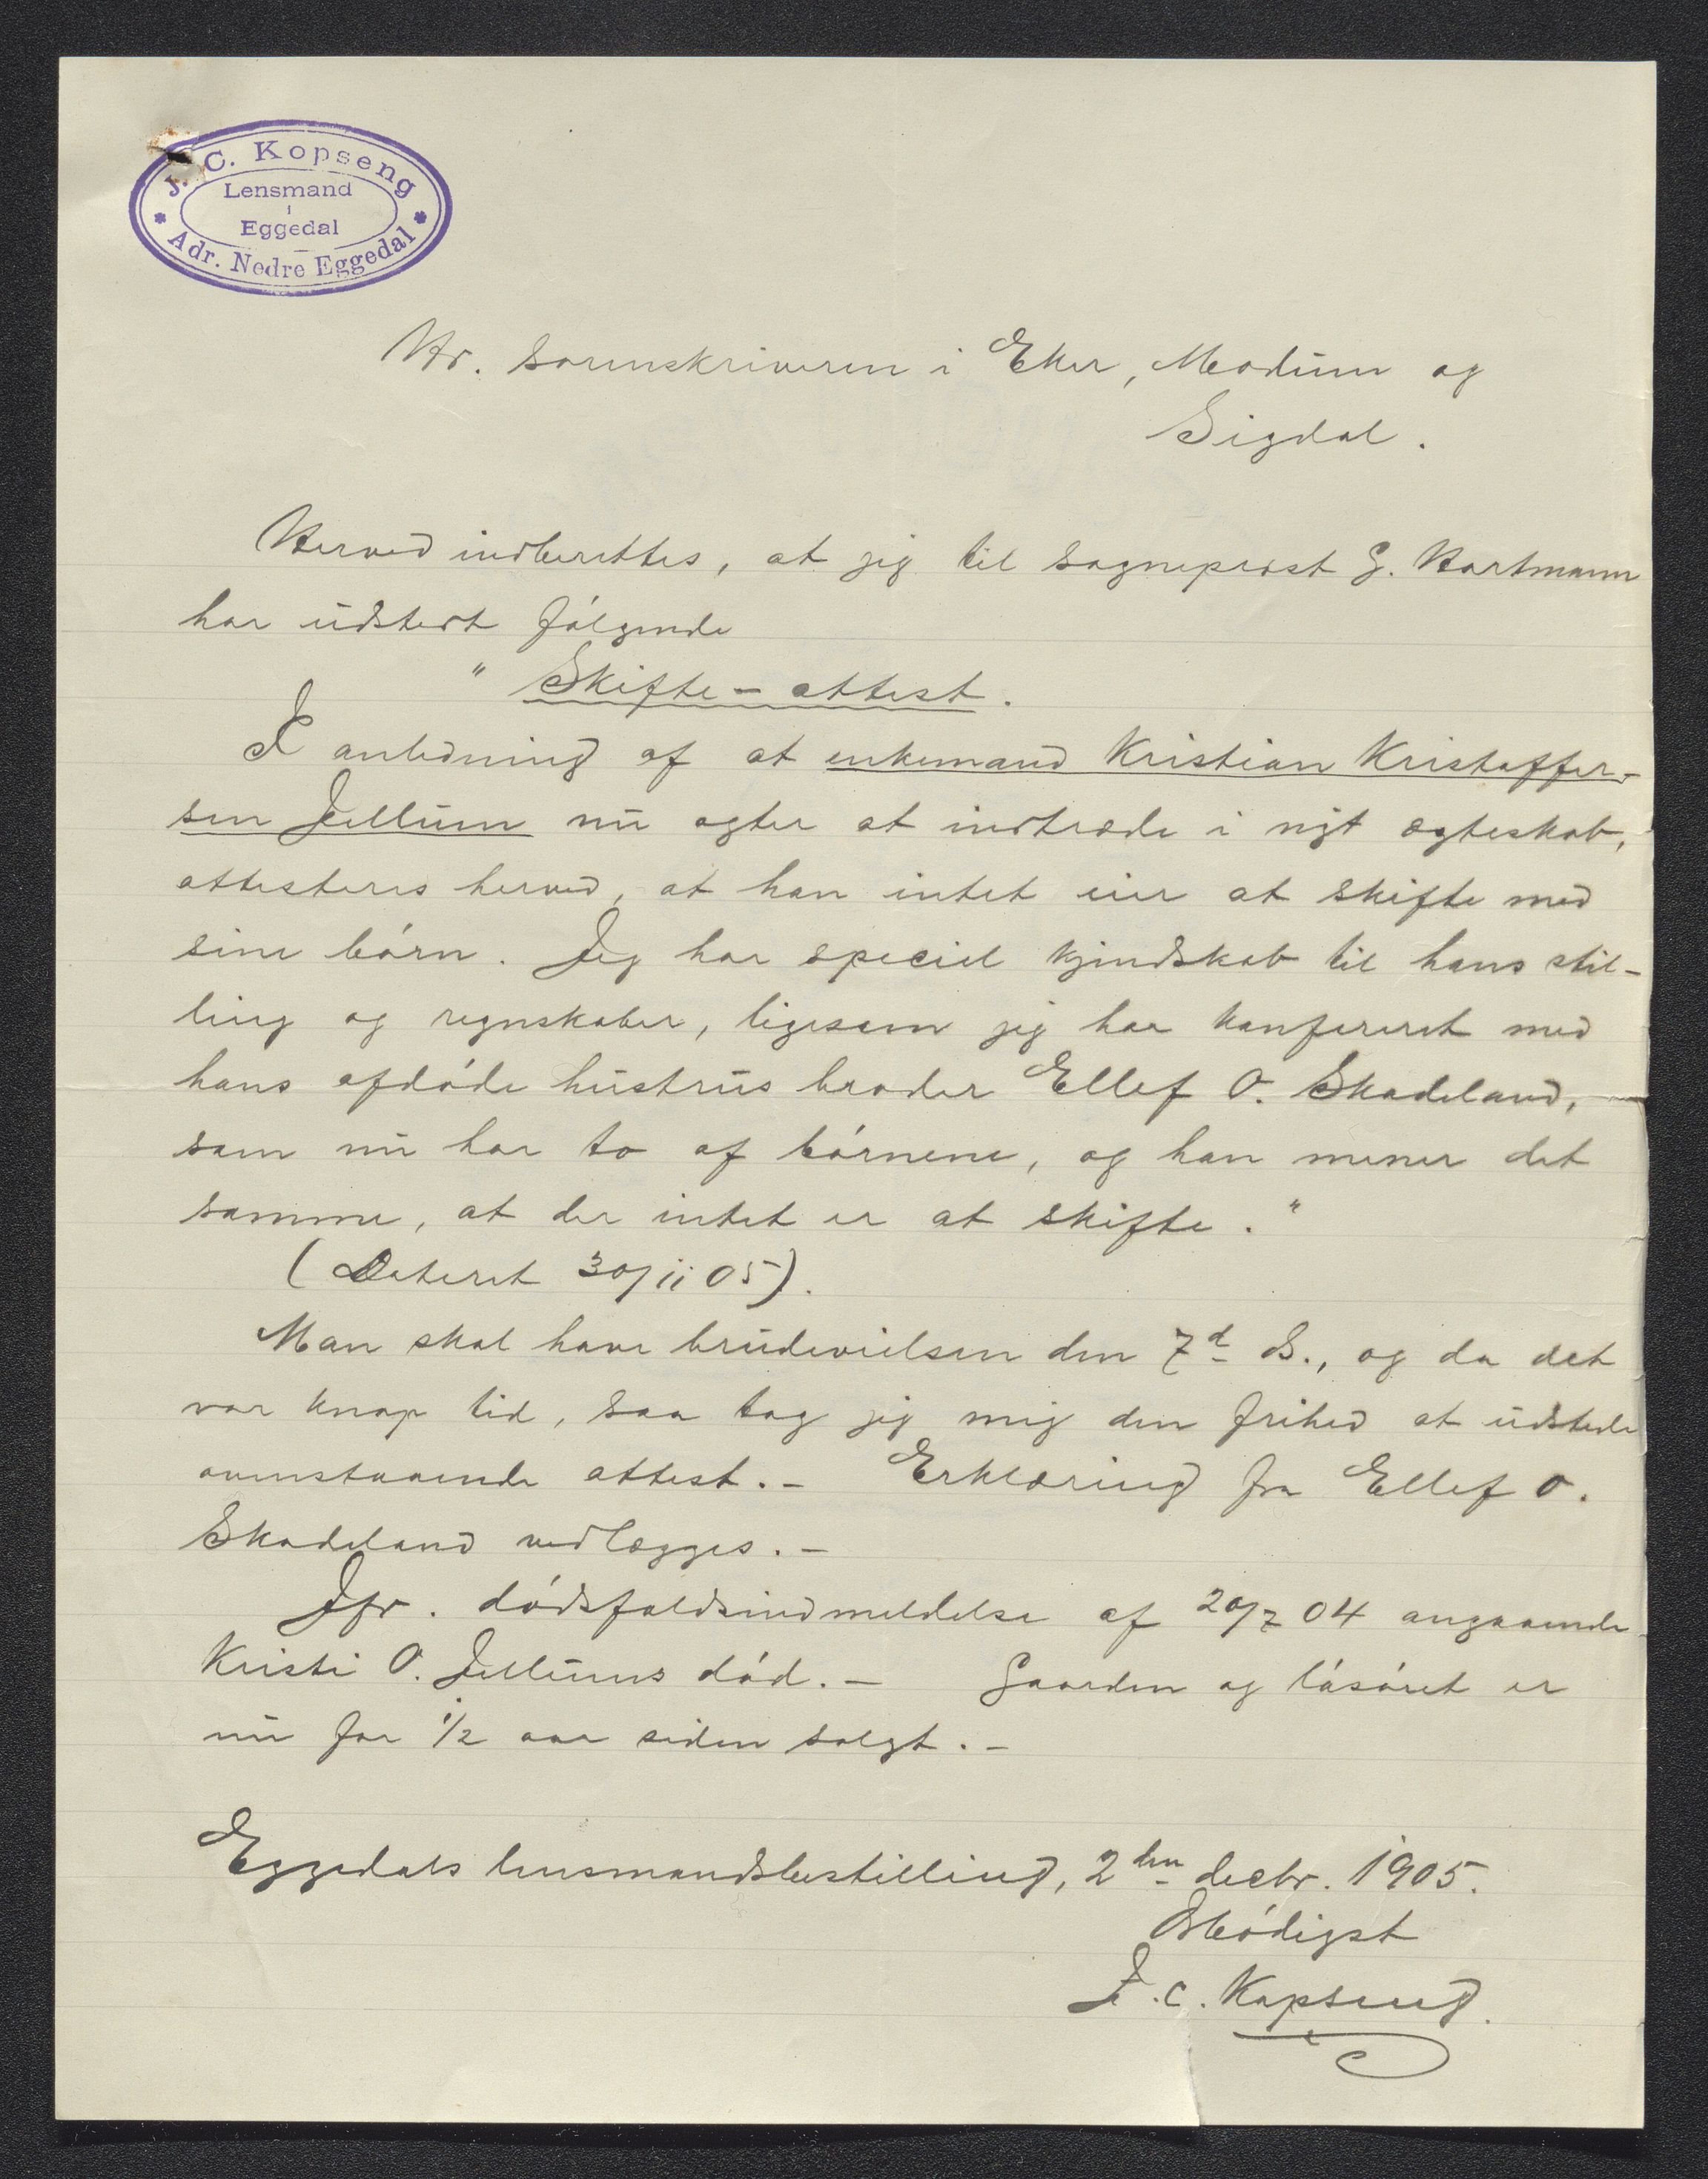 J. C. Kopseng
Lensmand
i
Eggedal
Adr. Nedre Eggedal
Hr. sorenskriveren i Eker, Modum og
Sigdal.
Herved indberettes, at jeg til sogneprest G. Hartmann
har udstedt følgende
" Skifte-attest.
I anledning af at enkemand Kristian Kristoffer-
sen Jellum nu agter at indtræde i nyt ægteskab,
attesteres herved, at han intet eier at skifte med
sine børn. Jeg har speciel kjendskab til hans stil-
ling og regnskaber, ligesom jeg har konfereret med
hans afdøde hustrus broder Ellef O. Skadeland,
som nu har to af børnene, og han mener det
samme, at der intet er at skifte."
(Dateret 30/11 05).
Man skal have brudevielsen den 7d ds., og da det
var knap tid, saa tog jeg mig den frihed at udstede
ovenstaaende attest.- Erklæring fra Ellef O.
Skadeland vedlægges.-
Jfr. dødsfaldsindmeldelse af 20/7 04 angaaende
Kristi O. Jellums død.- Gaarden og løsøret er
nu for 1/2 aar siden solgt.-
Eggedals lensmandsbestilling, 2den decbr. 1905.
Ærbødigst
J. C. Kopseng.